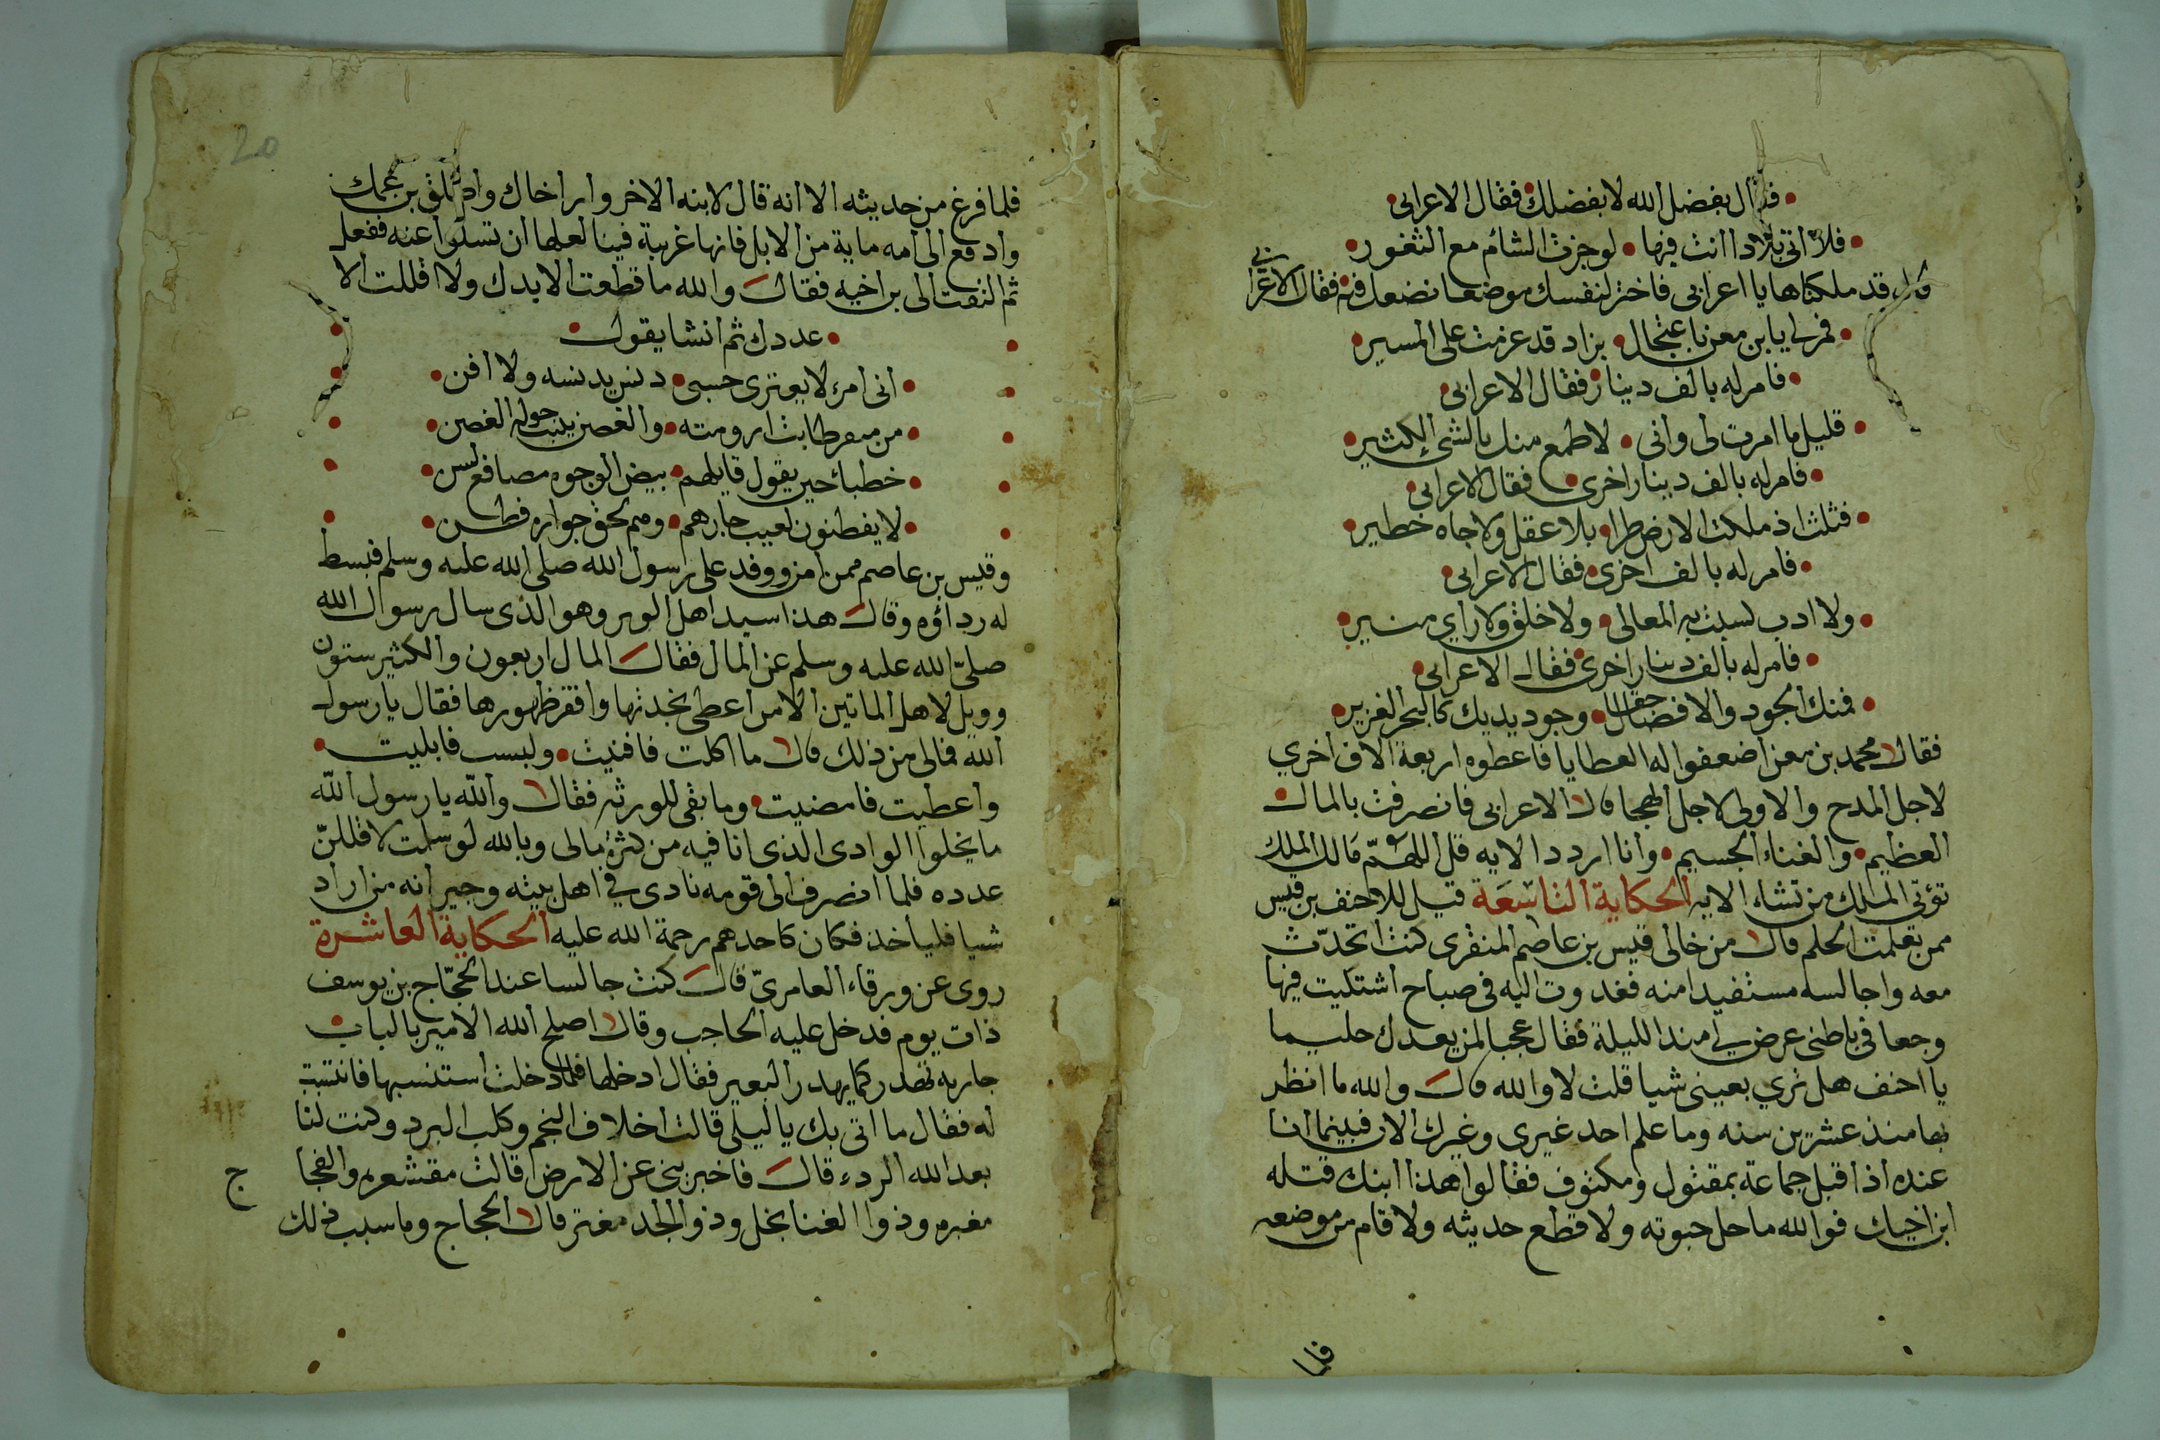 فقال بفضل الله لا بفضلك فقال الاعرابى
فلا اتى بلادا انت فيها • لوجزت الشام مع الثغور
قال قد ملكناها يا اعرابى فاختر لنفسك موضعا نضعك فيه فقال الاعرابى
فمر لى يا بن معن باعتجال • بزاد قد عزمت على المسير
فامر له بالف دينار فقال الاعرابى
قليل ما امرت لى وانى • لاطمع منك بالشئ الكثير
فامر له بالف دينار اخرى فقال الاعرابى
فثلث اذ ملكت الارض طرا • بلا عقل ولا جاه خطير
فامر له بالف اخرى • فقال الاعرابى
ولا ادب لسبت به المعالى • ولا خلق ولا راي منير
فامر له بالف دينار اخرى فقال الاعرابى
فمنك الجود والافضال حقا • وجود يديك كالبحر الغزير
فقال محمد بن معن اضعفوا له العطايا فاعطوه اربعة الاف اخري
لاجل المدح والاولى لاجل الهجا قال الاعرابى فانصرفت بالمال
العظيم • والغناء الجسيم • وانا اردد الايه قل اللهمّ مالك الملك
تؤتى الملك من تشاء الايه الحكاية التاسعة قيل للاحنف بن قيس
ممن تعلمت الحلم قال من خالى قيس بن عاصم المنقرى كنت اتحدّث
معه واجالسه مستفيدا منه فغدوت اليه فى صباح اشتكيت فيها
وجعا فى باطنى عرض لى منذ الليلة فقال عجبا لمن يعدك حليما
يا احنف هل تري بعينى شيا قلت لا والله قال والله ما انظر
بها منذ عشرين سنه وما علم احد غيرى وغيرك الان فبينما انا
عنده اذ اقبل جماعة بمقتول ومكتوف فقالوا هذا ابنك قتله
ابن اخيك فوالله ما حل حبوته ولا قطع حديثه ولا قام من موضعه
فلما
20
فلما فرغ من حديثه الا انه قال لابنه الاخر وار اخاك واطلق بن عمك
وادفع الى امه ماية من الابل فانها غريبة فينا لعلها ان تسلوا عنه ففعل
ثم التفت الى بن اخيه فقال والله ما قطعت الا يدك ولا اقللت الا
• عددك ثم انشا يقول
• انى امرء لا يعترى حسبى • دنس يدنسه ولا افن •
• من منقر طابت ارومته • والغصن ينبت حوله الغصن •
• خطباء حين يقول قايلهم • بيض الوجوه مصاقع لسن •
• لا يفطنون لعيب جارهم • وهم لحق جواره فطن •
وقيس بن عاصم ممن امن ووفد على رسول الله صلى الله عليه وسلم فبسط
له رداؤه وقال هذا سيد اهل الوبر وهو الذى سال رسول الله
صلىّ الله عليه وسلم عن المال فقال المال اربعون والكثير ستون
وويل لاهل الماتين الا من اعطى نجدتها وافقر ظهورها فقال يا رسول
الله فمالى من ذلك قال ما اكلت فافنيت • ولبست فابليت •
واعطيت فامضيت • وما بقى للورثه فقال والله يا رسول الله
ما يخلوا الوادى الذى انا فيه من كثرة مالى وبالله لو سلمت لاقللنّ
عدده فلما انصرف الى قومه نادى في اهل بيته وجيرانه من اراد
شيا فليأخذ فكان كاحدهم رحمة الله عليه الحكاية العاشرة
روى عن ورقاء العامريّ قال كنت جالسا عند الحجّاج بن يوسف
ذات يوم فدخل عليه الحاجب وقال اصلح الله الامير بالباب
جاريه تهدر كما يهدر البعير فقال ادخلها فلما دخلت استنسبها فانتسبت
له فقال ما اتى بك يا ليلى قالت اخلاف النجم وكلب البرد وكنت لنا
بعد الله الردء قال فاخبرينى عن الارض قالت مقشعره والفجا
مغبره وذوا الغنا بخل وذو الجلد مغتر قال الحجاج وما سبب ذلك
ج